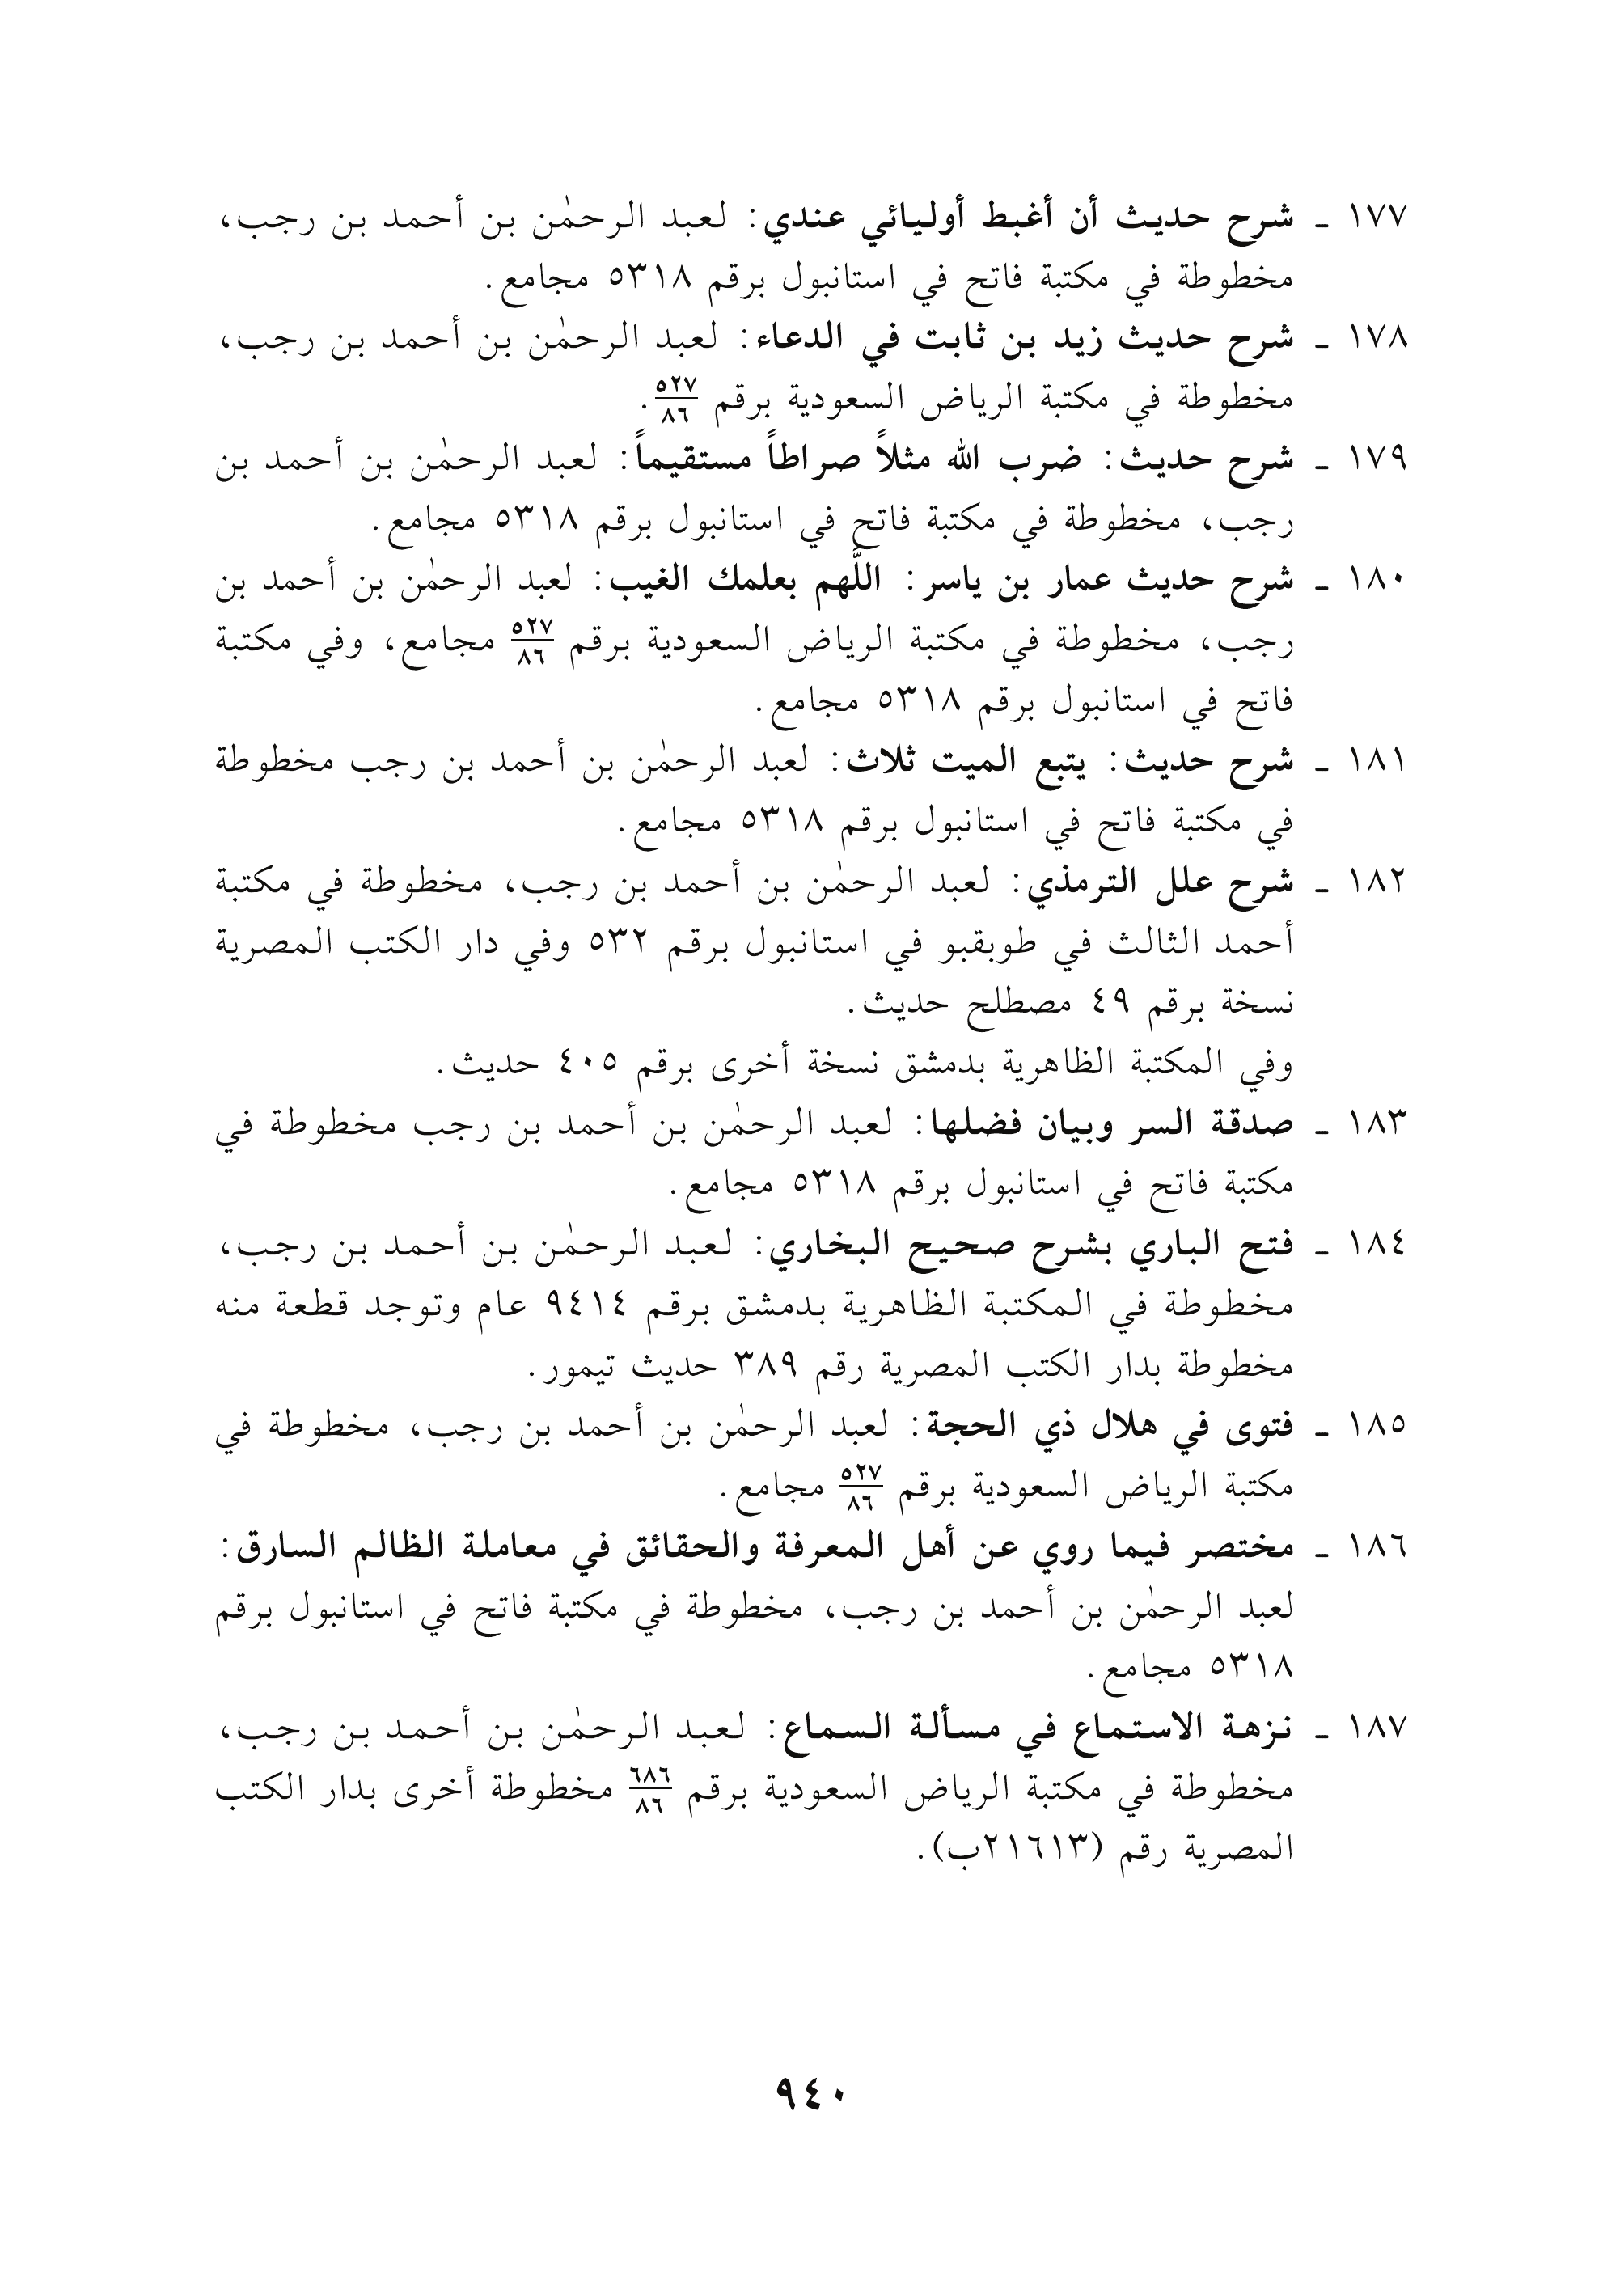 ١٧٧ ـ شرح حديث أن أغبط أوليائي عندي: لعبد الرحمٰن بن أحمد بن رجب،
مخطوطة في مكتبة فاتح في استانبول برقم ٥٣١٨ مجامع.
١٧٨ ـ شرح حديث زيد بن ثابت في الدعاء: لعبد الرحمٰن بن أحمد بن رجب،
مخطوطة في مكتبة الرياض السعودية برقم ٥٢٧/٨٦.
١٧٩ ـ شرح حديث: ضرب الله مثلاً صراطاً مستقيماً: لعبد الرحمٰن بن أحمد بن
رجب، مخطوطة في مكتبة فاتح في استانبول برقم ٥٣١٨ مجامع.
١٨٠ ـ شرح حديث عمار بن ياسر: اللَّهم بعلمك الغيب: لعبد الرحمٰن بن أحمد بن
رجب، مخطوطة في مكتبة الرياض السعودية برقم ٥٢٧/٨٦ مجامع، وفي مكتبة
فاتح في استانبول برقم ٥٣١٨ مجامع.
١٨١ ـ شرح حديث: يتبع الميت ثلاث: لعبد الرحمٰن بن أحمد بن رجب مخطوطة
في مكتبة فاتح في استانبول برقم ٥٣١٨ مجامع.
١٨٢ ـ شرح علل الترمذي: لعبد الرحمٰن بن أحمد بن رجب، مخطوطة في مكتبة
أحمد الثالث في طوبقبو في استانبول برقم ٥٣٢ وفي دار الكتب المصرية
نسخة برقم ٤٩ مصطلح حديث.
وفي المكتبة الظاهرية بدمشق نسخة أخرى برقم ٤٠٥ حديث.
١٨٣ ـ صدقة السر وبيان فضلها: لعبد الرحمٰن بن أحمد بن رجب مخطوطة في
مكتبة فاتح في استانبول برقم ٥٣١٨ مجامع.
١٨٤ ـ فتح الباري بشرح صحيح البخاري: لعبد الرحمٰن بن أحمد بن رجب،
مخطوطة في المكتبة الظاهرية بدمشق برقم ٩٤١٤ عام وتوجد قطعة منه
مخطوطة بدار الكتب المصرية رقم ٣٨٩ حديث تيمور.
١٨٥ ـ فتوى في هلال ذي الحجة: لعبد الرحمٰن بن أحمد بن رجب، مخطوطة في
مكتبة الرياض السعودية برقم ٥٢٧/٨٦ مجامع.
١٨٦ ـ مختصر فيما روي عن أهل المعرفة والحقائق في معاملة الظالم السارق:
لعبد الرحمٰن بن أحمد بن رجب، مخطوطة في مكتبة فاتح في استانبول برقم
٥٣١٨ مجامع.
١٨٧ ـ نزهة الاستماع في مسألة السماع: لعبد الرحمٰن بن أحمد بن رجب،
مخطوطة في مكتبة الرياض السعودية برقم ٦٨٦/٨٦ مخطوطة أخرى بدار الكتب
المصرية رقم (٢١٦١٣ب).
٩٤٠